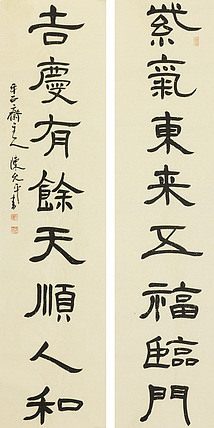 紫氣東来五福臨門
吉慶有餘天順人和